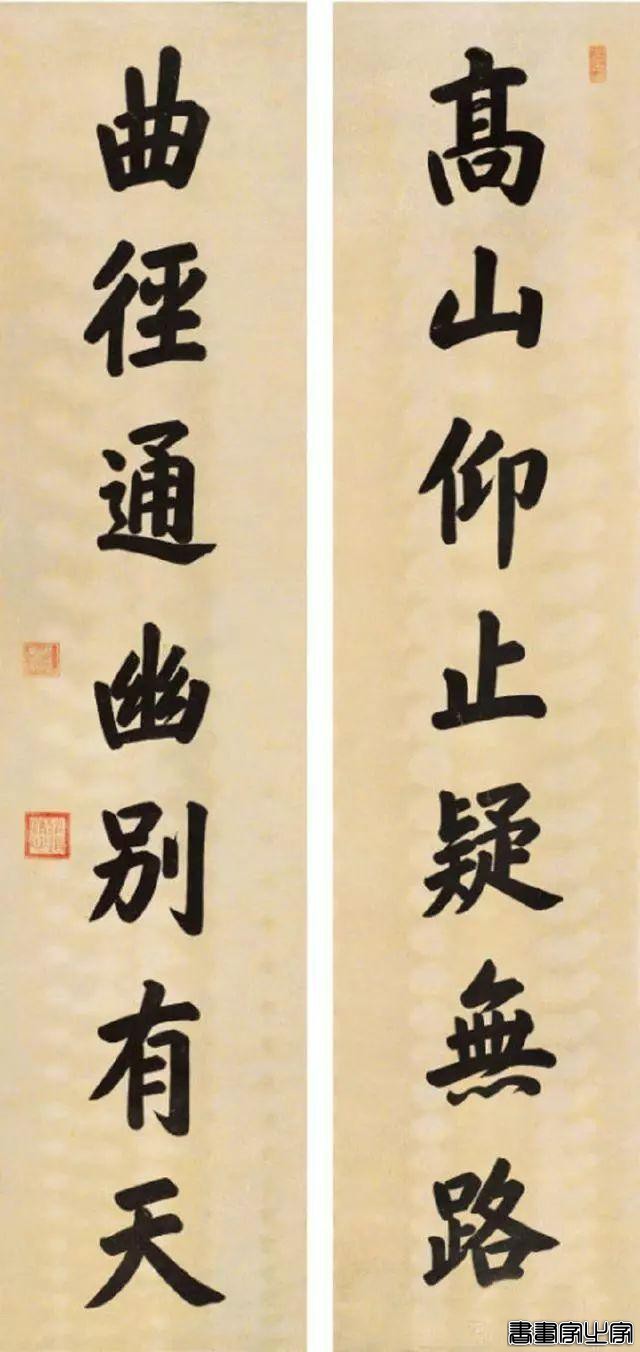 高山仰止疑無路
曲徑通幽別有天
書畫家之家